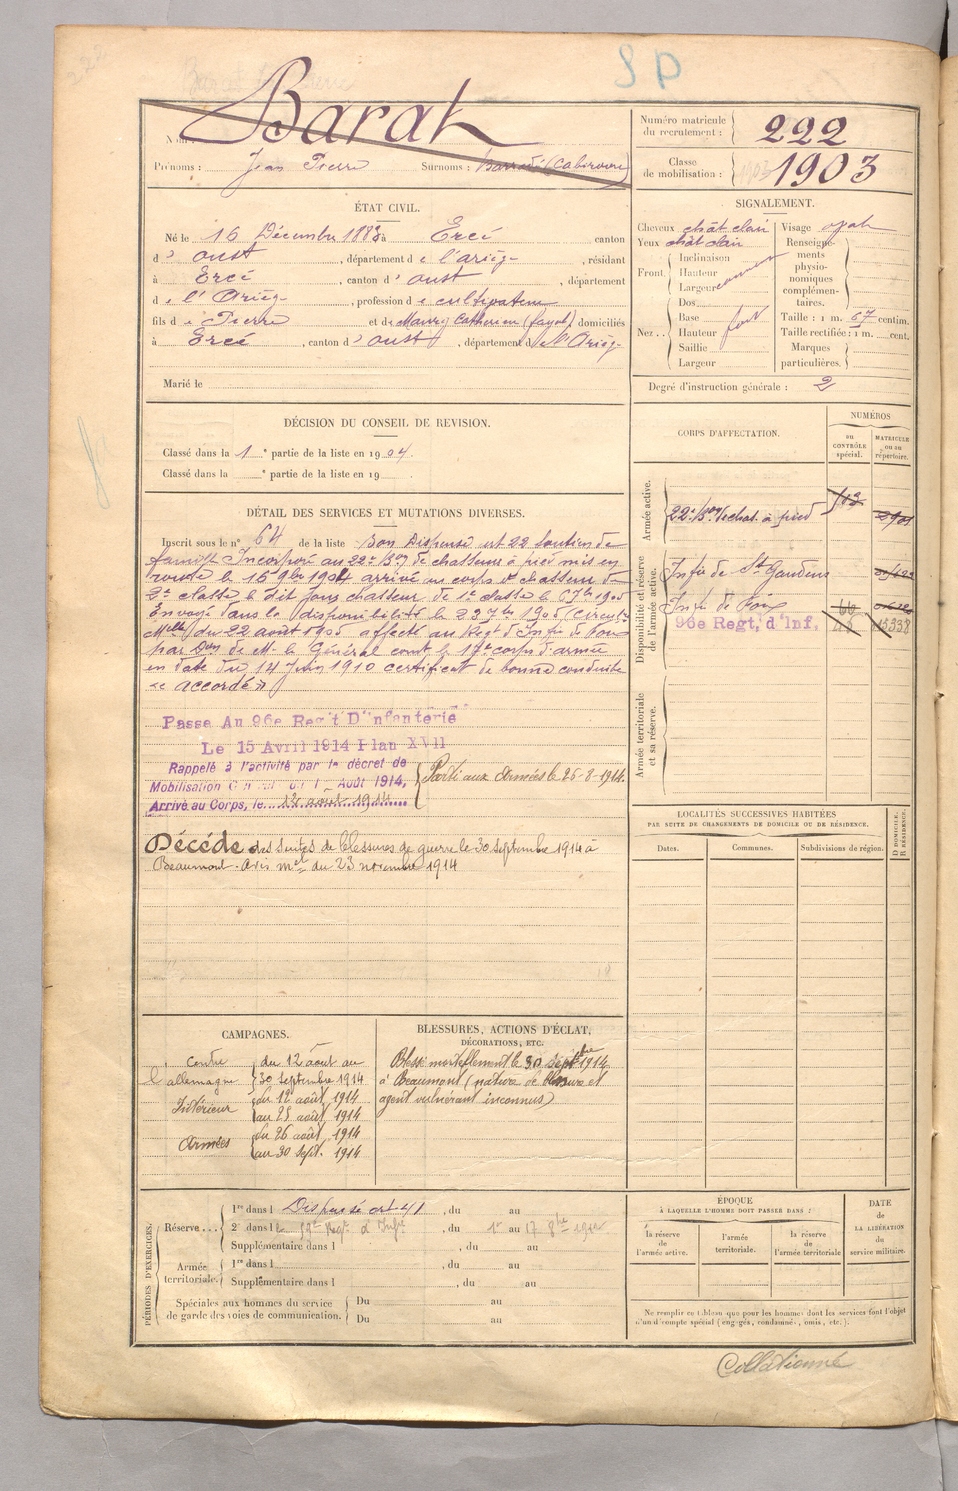 S D
Barat
Nom :
Prénoms : Jean Pierre Surnoms :
Numéro matricule du recrutement : 222
Classe de mobilisation : 1903
ÉTAT CIVIL.
Né le 16 Décembre 1883 à Ercé canton
d' oust, département de l'ariège, résidant
à Ercé, canton d' oust, département
de l'Ariège, profession de cultivateur
fils de Pierre et de Maury Catherine (fayot), domiciliés
à Ercé, canton d' oust, département de l'Ariège
Marié le
SIGNALEMENT.
Cheveux chât clair
Yeux chât clair
Front. Inclinaison
Hauteur
Largeur
Nez. Dos
Base fort
Hauteur
Saillie
Largeur
Visage ovale
Renseignements physionomiques complémentaires.
Taille : 1 m. 67 centim.
Taille rectifiée : 1 m. cent.
Marques particulières.
Degré d'instruction générale : 2
DÉCISION DU CONSEIL DE REVISION.
Classé dans la 1e partie de la liste en 1904.
Classé dans la e partie de la liste en 19 .
DÉTAIL DES SERVICES ET MUTATIONS DIVERSES.
Inscrit sous le n° 64 de la liste Bon Dispensé art 22 soutien de
famille Incorporé au 22e Bon de chasseurs à pied mis en
route le 16 9bre 1904 arrivé au corps chasseur de
2e classe le dit jour chasseur de 1e classe le 6 7bre 1905
Envoyé dans la disponibilité le 23 7bre 1905 (Circre
Melle du 22 août 1905 affecté au Régt d'Infie de Foix
par Don de Mr le Général comt le 17e corps d'armée
en date du 14 juin 1910 certificat de bonne conduite
« accordé »
Passé Au 96e Regit D'infanterie
Le 15 Avril 1914 Plan XVII
Rappelé à l'activité par le décret de
Mobilisation Août 1914,
Arrivé au Corps, le 12 août 1914
Parti aux Armées le 26-8-1914.
Décédé des suites de blessures de guerre le 30 septembre 1914 à
Beaumont. Avis mel du 23 novembre 1914
CORPS D'AFFECTATION.
NUMÉROS
AU CONTRÔLE spécial.
MATRICULE ou au répertoire.
Armée active.
22e Bon de chas. à pied
Disponibilité et réserve de l'armée active.
Infie de St Gaudens
Infie de Foix
96e Regt, d'Inf.
Armée territoriale et sa réserve.
LOCALITÉS SUCCESSIVES HABITÉES
PAR SUITE DE CHANGEMENTS DE DOMICILE OU DE RÉSIDENCE.
Dates. Communes. Subdivisions de région. D DOMICILE. R RÉSIDENCE.
CAMPAGNES.
Contre l'allemagne du 12 août au 30 septembre 1914
Intérieur du 12 août 1914 au 25 août 1914
Armées du 26 août 1914 au 30 sept. 1914
BLESSURES, ACTIONS D'ÉCLAT,
DÉCORATIONS, ETC.
Blessé mortellement le 30 septbre 1914
à Beaumont (nature de blessure et
agent vulnérant inconnus)
PÉRIODES D'EXERCICES.
Réserve 1re dans l Dispensé art 41, du au
2e dans le 59e Régt d'Infie du 1er au 17 8bre 1910
Supplémentaire dans l , du au
Armée territoriale. 1re dans l , du au
Supplémentaire dans l , du au
Spéciales aux hommes du service de garde des voies de communication. Du au
Du au
ÉPOQUE
À LAQUELLE L'HOMME DOIT PASSER DANS :
la réserve de l'armée active.
l'armée territoriale.
la réserve de l'armée territoriale
DATE de LA LIBÉRATION du service militaire.
Ne remplir ce tableau que pour les hommes dont les services font l'objet
d'un décompte spécial (engagés, condamnés, omis, etc.).
Collationné